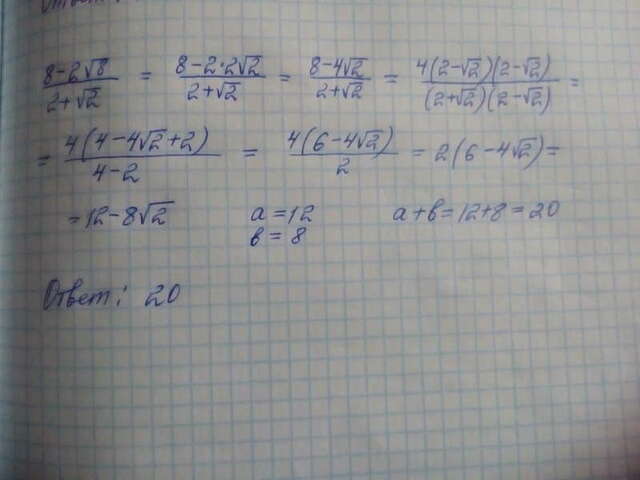 Ответ:
(8-2√8)/(2+√2) = (8-2·2√2)/(2+√2) = (8-4√2)/(2+√2) = (4(2-√2)(2-√2))/((2+√2)(2-√2)) =
= (4(4-4√2+2))/(4-2) = (4(6-4√2))/2 = 2(6-4√2) =
= 12-8√2 a=12 a+в=12+8=20
в=8
Ответ: 20